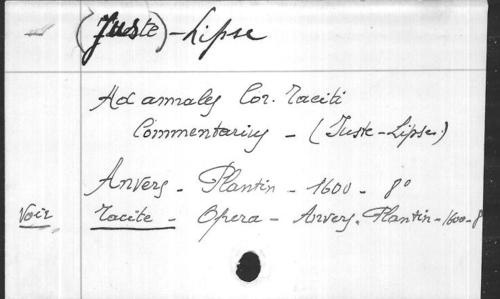 (Juste)-Lipse
Ad annales Cor. Taciti
Commentarius - (Juste-Lipse.)
Anvers - Plantin - 1600 - 8°
Voir Tacite - Opera - Anvers. Plantin - 1600 - 8